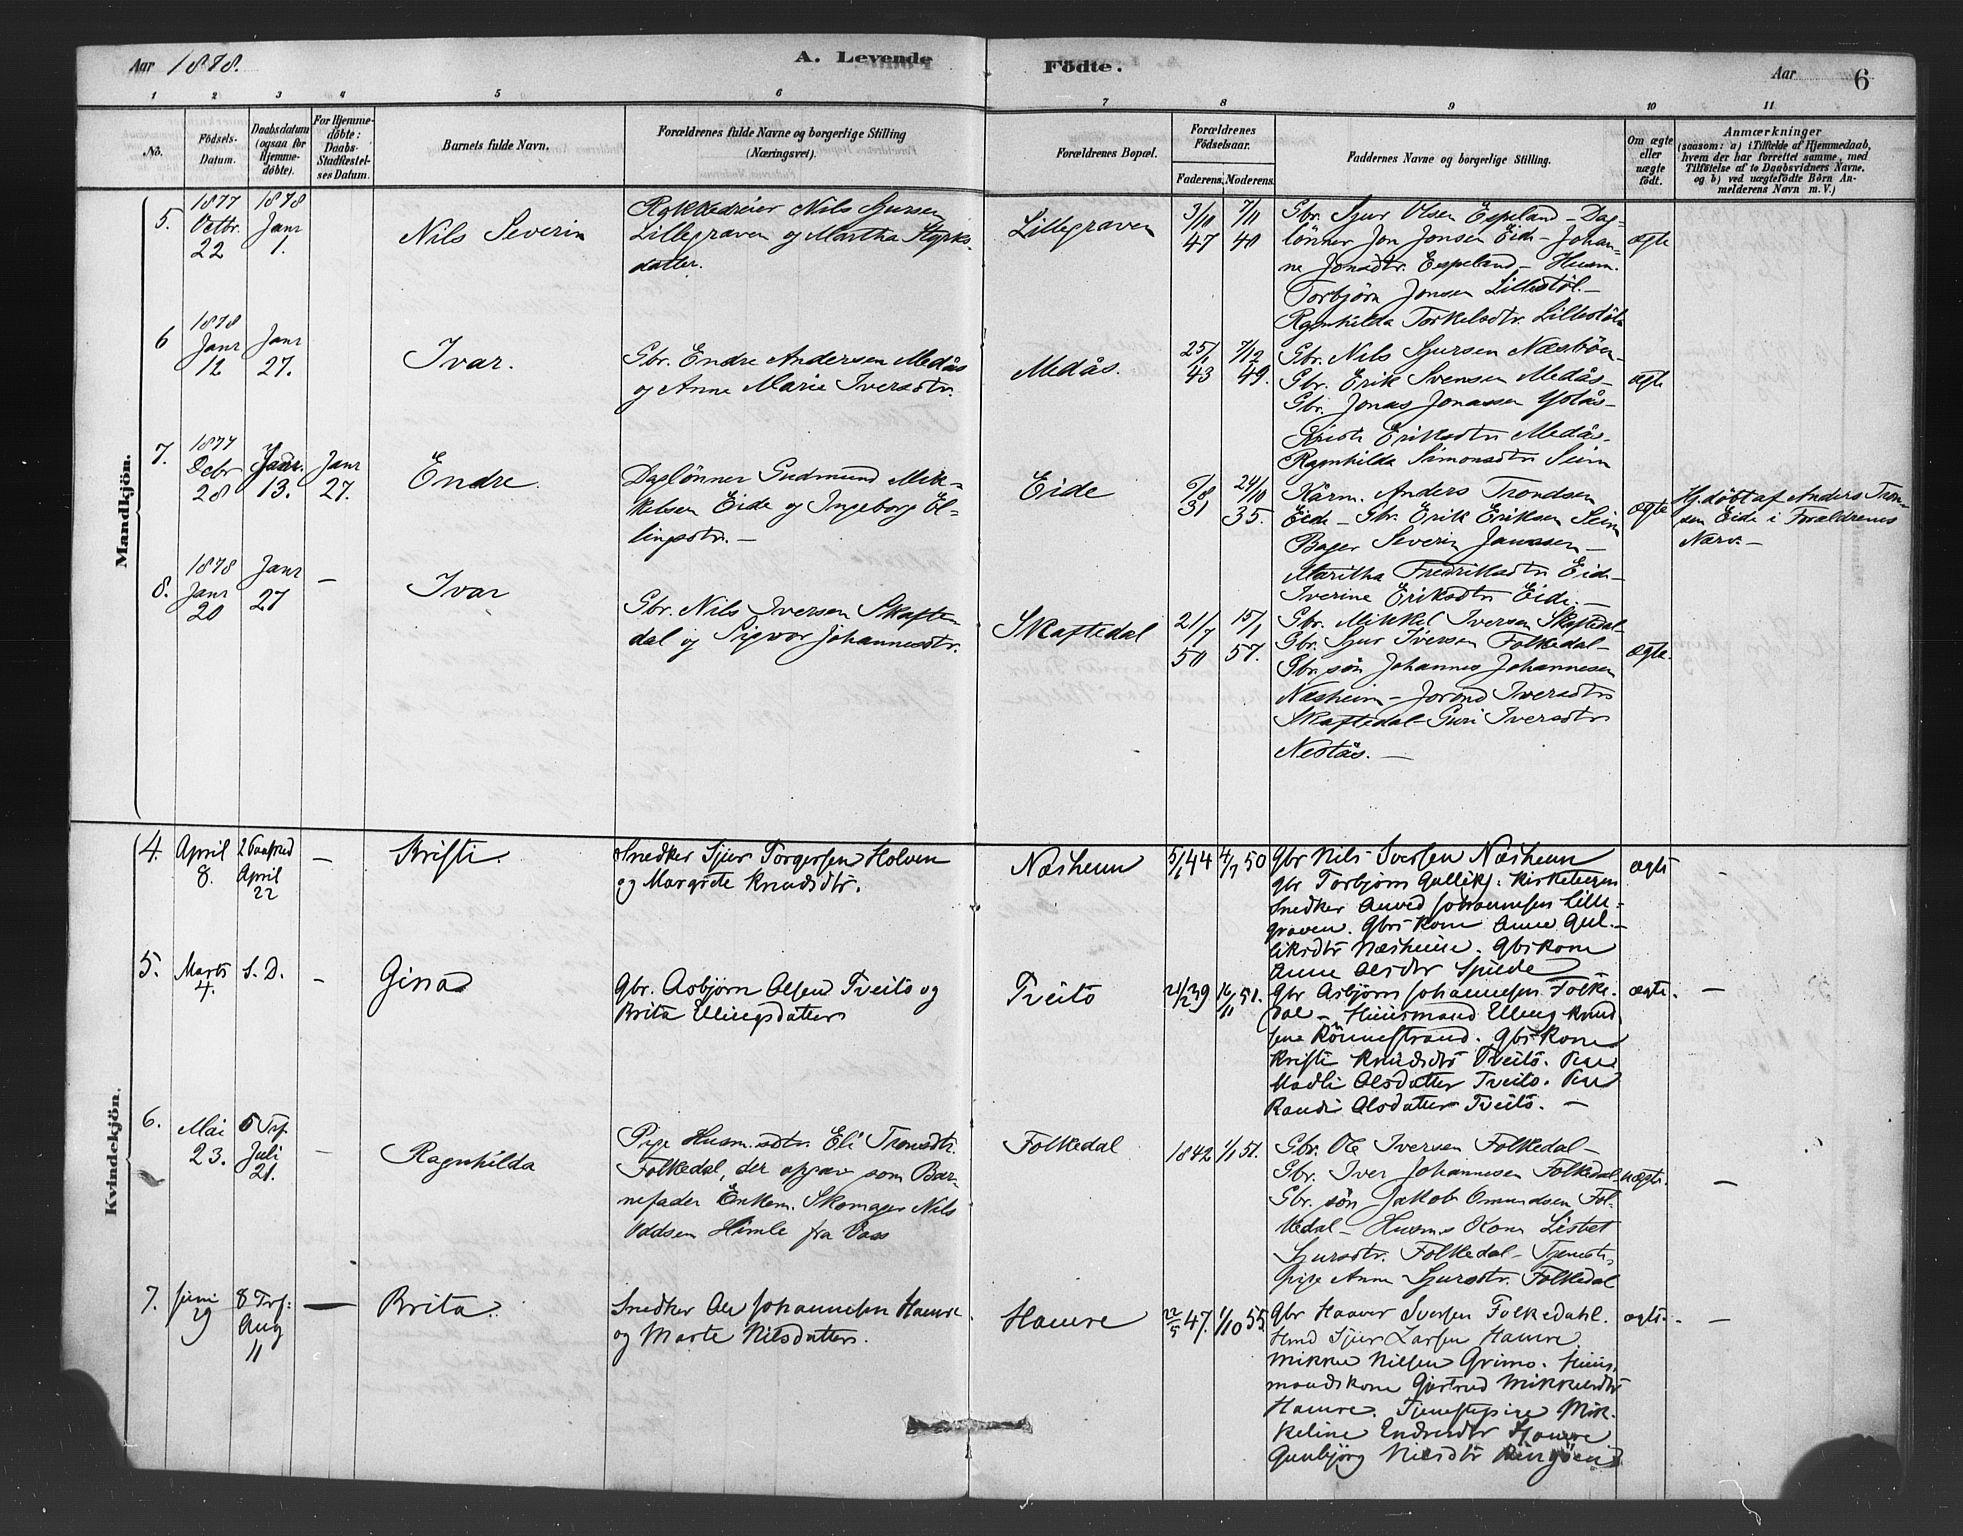 Aar 1878.
A. Levende Födte.
Aar 6
1 2 3 4 5 6 7 8 9 10 11
No.
Födsels-Datum.
Daabsdatum (ogsaa for Hjemmedöbte).
For Hjemmedöbte: Daabs-Stadfæstelses Datum.
Barnets fulde Navn.
Forældrenes fulde Navne og borgerlige Stilling (Næringsvei).
Forældrenes Bopæl.
Forældrenes Födselsaar.
Faderens. Moderens.
Faddernes Navne og borgerlige Stilling.
Om ægte eller uægte födt.
Anmærkninger
(saasom: a) i Tilfælde af Hjemmedaab, hvem der har forrettet samme, med Tilföielse af to Daabsvidners Navne, og b) ved uægtefödte Börn Anmelderens Navn m. V.)
Mandkjön.
5. 1877 Octbr. 22
1878 Janr 1.
Nils Severin
Nils Sjursen
Lillegraven og Martha Styrks-
datter.
Lillegraven
3/10 47
7/11 40
Gbr. Sjur Olsen Espeland – Dag-
lönner Jon Jonsen Eide – Johan-
ne Jonsdtr. Espeland – Husm.
Torbjörn Jonsen Lillestöl. –
Ragnhilda Torkelsdtr. Lillestöl
ægte
6 1878 Janr 12
Janr 27.
Ivar.
Gbr. Endre Andersen Medås
og Anne Marie Iversdtr.
Medås.
25/1 43
7/12 49.
Gbr. Nils Sjursen Næsböen –
Gbr. Erik Svensen Medås –
Gbr. Jonas Jonassen
Eriksdtr Medås –
Ragnhilda Simonsdtr Seim
ægte
7. 1877 Decbr 28
Janr. 13.
Janr 27.
Endre.
Daglönner Gudmund Mik-
kelsen Eide og Ingeborg El-
lingsdtr. –
Eide
5/8 31
24/10 35.
Anders Trondsen
Eide – Gbr. Erik Eriksen Seim
Bager Severin Janssen –
Maritha Fredriksdtr Eide –
Iverine Eriksdtr Eide. –
ægte
Hj.döbt af Anders Tron-
sen Eide i Forældrenes
Nærv. –
8. 1878 Janr 20
Janr 27
–
Ivar
Gbr. Nils Iversen Skafte-
dal og Sigvor Johannesdtr.
Skaftedal
21/7 50
15/1 57.
Gbr. Mikkel Iversen Skaftedal –
Gbr. Sjur Iversen Folkedal –
Gbr. sön Johannes Johannesen
Næsheim – Jorond Iversdtr
Skaftedal – Guri Iversdtr
Nestås. –
ægte.
Kvindekjön.
4. April 8.
April 22
–
Kristi.
Snedker Sjur Torgersen Holven
og Margrete Knudsdtr.
Næsheim
5/1 44
4/7 50
Gbr Nils Iversen Næsheim
gbr Torbjörn Gulliks. Kirkebergen
Snedker Amved Johannesen Lille-
graven. Gbrs Kone Anne Gul-
liksdtr Næsheim. Gbs Kone
Anne Olsdtr Spilde
ægte
–
5. Marts 4.
S. D.
–
Gina
Gbr. Asbjörn Olsen Tveito og
Brita Ellingsdatter
Tveito
21/2 39
16/11 51.
Gbr Asbjörn Johannesen Folke-
dal – Huusmand Elling Knud-
sen Rönnestrand. Gbs Kone
Kristi Knudsdtr Tveito. Pige
Madli Olsdatter Tveito. Pige
Randi Olsdatter Tveito. –
ægte.
–
6. Mai 23.
5 Trf. Juli 21.
–
Ragnhilda
Pige Husm.sdtr. Eli Tronsdtr.
Folkedal, der opgav som Bar-
nefader Enkem. Skomager Nils
Oddsen Himle fra Voss
Folkedal
1842
1/1 51.
Gbr. Ole Iversen Folkedal –
Gbr. Iver Johannesen Folkedal –
Gbr. sön Jakob Omundsen Fol-
kedal – Husms Kone Lisbet
Sjursdtr. Folkedal – Tjeneste-
pige Anne Sjursdtr. Folkedal
uægte.
–
7. Juni 29
8 Trf: Aug 11
–
Brita.
Snedker Ole Johannesen Hamre
og Marte Nilsdatter.
Hamre
22/5 47.
1/10 55.
Gbr Haaver Iversen Folkedahl.
Hmd Sjur Larsen Hamre
Mikkel Nilsen Grimo. Huus-
mandskone Gjertrud Mikkelsdtr
Hamre. Tjenestepige Mik-
keline Endresdtr Hamre
Gunbjörg Nilsdtr Ringöen
ægte.
–